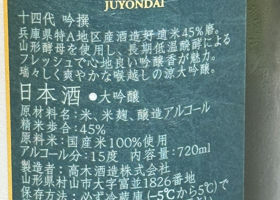 JUYONDAI
十四代 吟撰
兵庫県特A地区産酒造好適米45%磨。
山形酵母を使用し、長期低温醗酵による
フレッシュで心地良い吟醸香が魅力。
瑞々しく爽やかな喉越しの涼大吟醸。
日本酒 ●大吟醸
原材料名:米、米麹、醸造アルコール
精米歩合:45%
原料米:国産米100%使用
アルコール分:15度 内容量:720ml
製造者:高木酒造株式会社
山形県村山市大字富並1826番地
保存方法:必ず冷蔵庫(-5℃から5℃)で